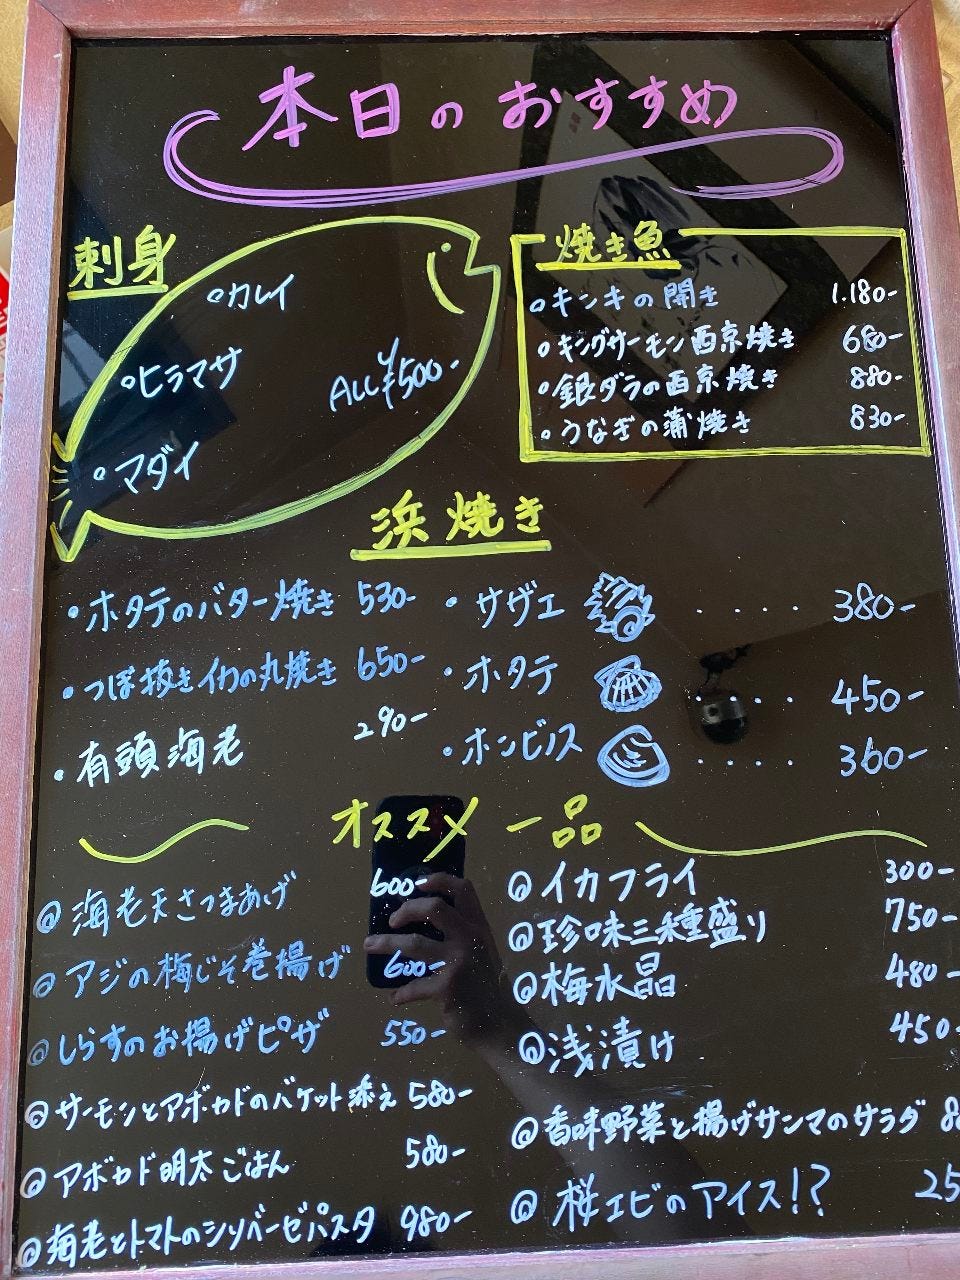 本日のおすすめ
刺身
カレイ
ヒラマサ
ALL ¥500-
マダイ
焼き魚
キンキの開き 1.180-
キングサーモン西京焼き 680-
銀ダラの西京焼き 880-
うなぎの蒲焼き 830-
浜焼き
・ホタテのバター焼き 530-
・つぼ抜きイカの丸焼き 650-
・有頭海老 290-
・サヴェ ････ 380-
・ホタテ ････ 450-
・ホンビノス ････ 360-
オススメ一品
◎海老天さつまあげ 600-
◎アジの梅じそ巻揚げ 600-
◎しらすのお揚げピザ 550-
◎サーモンとアボカドのバケット添え 580-
◎アボカド明太ごはん 580-
◎海老とトマトのシソバーゼパスタ 980-
◎イカフライ 300-
◎珍味三種盛り 750-
◎梅水晶 480-
◎浅漬け 450-
◎香味野菜と揚げサンマのサラダ
◎桜エビのアイス!?